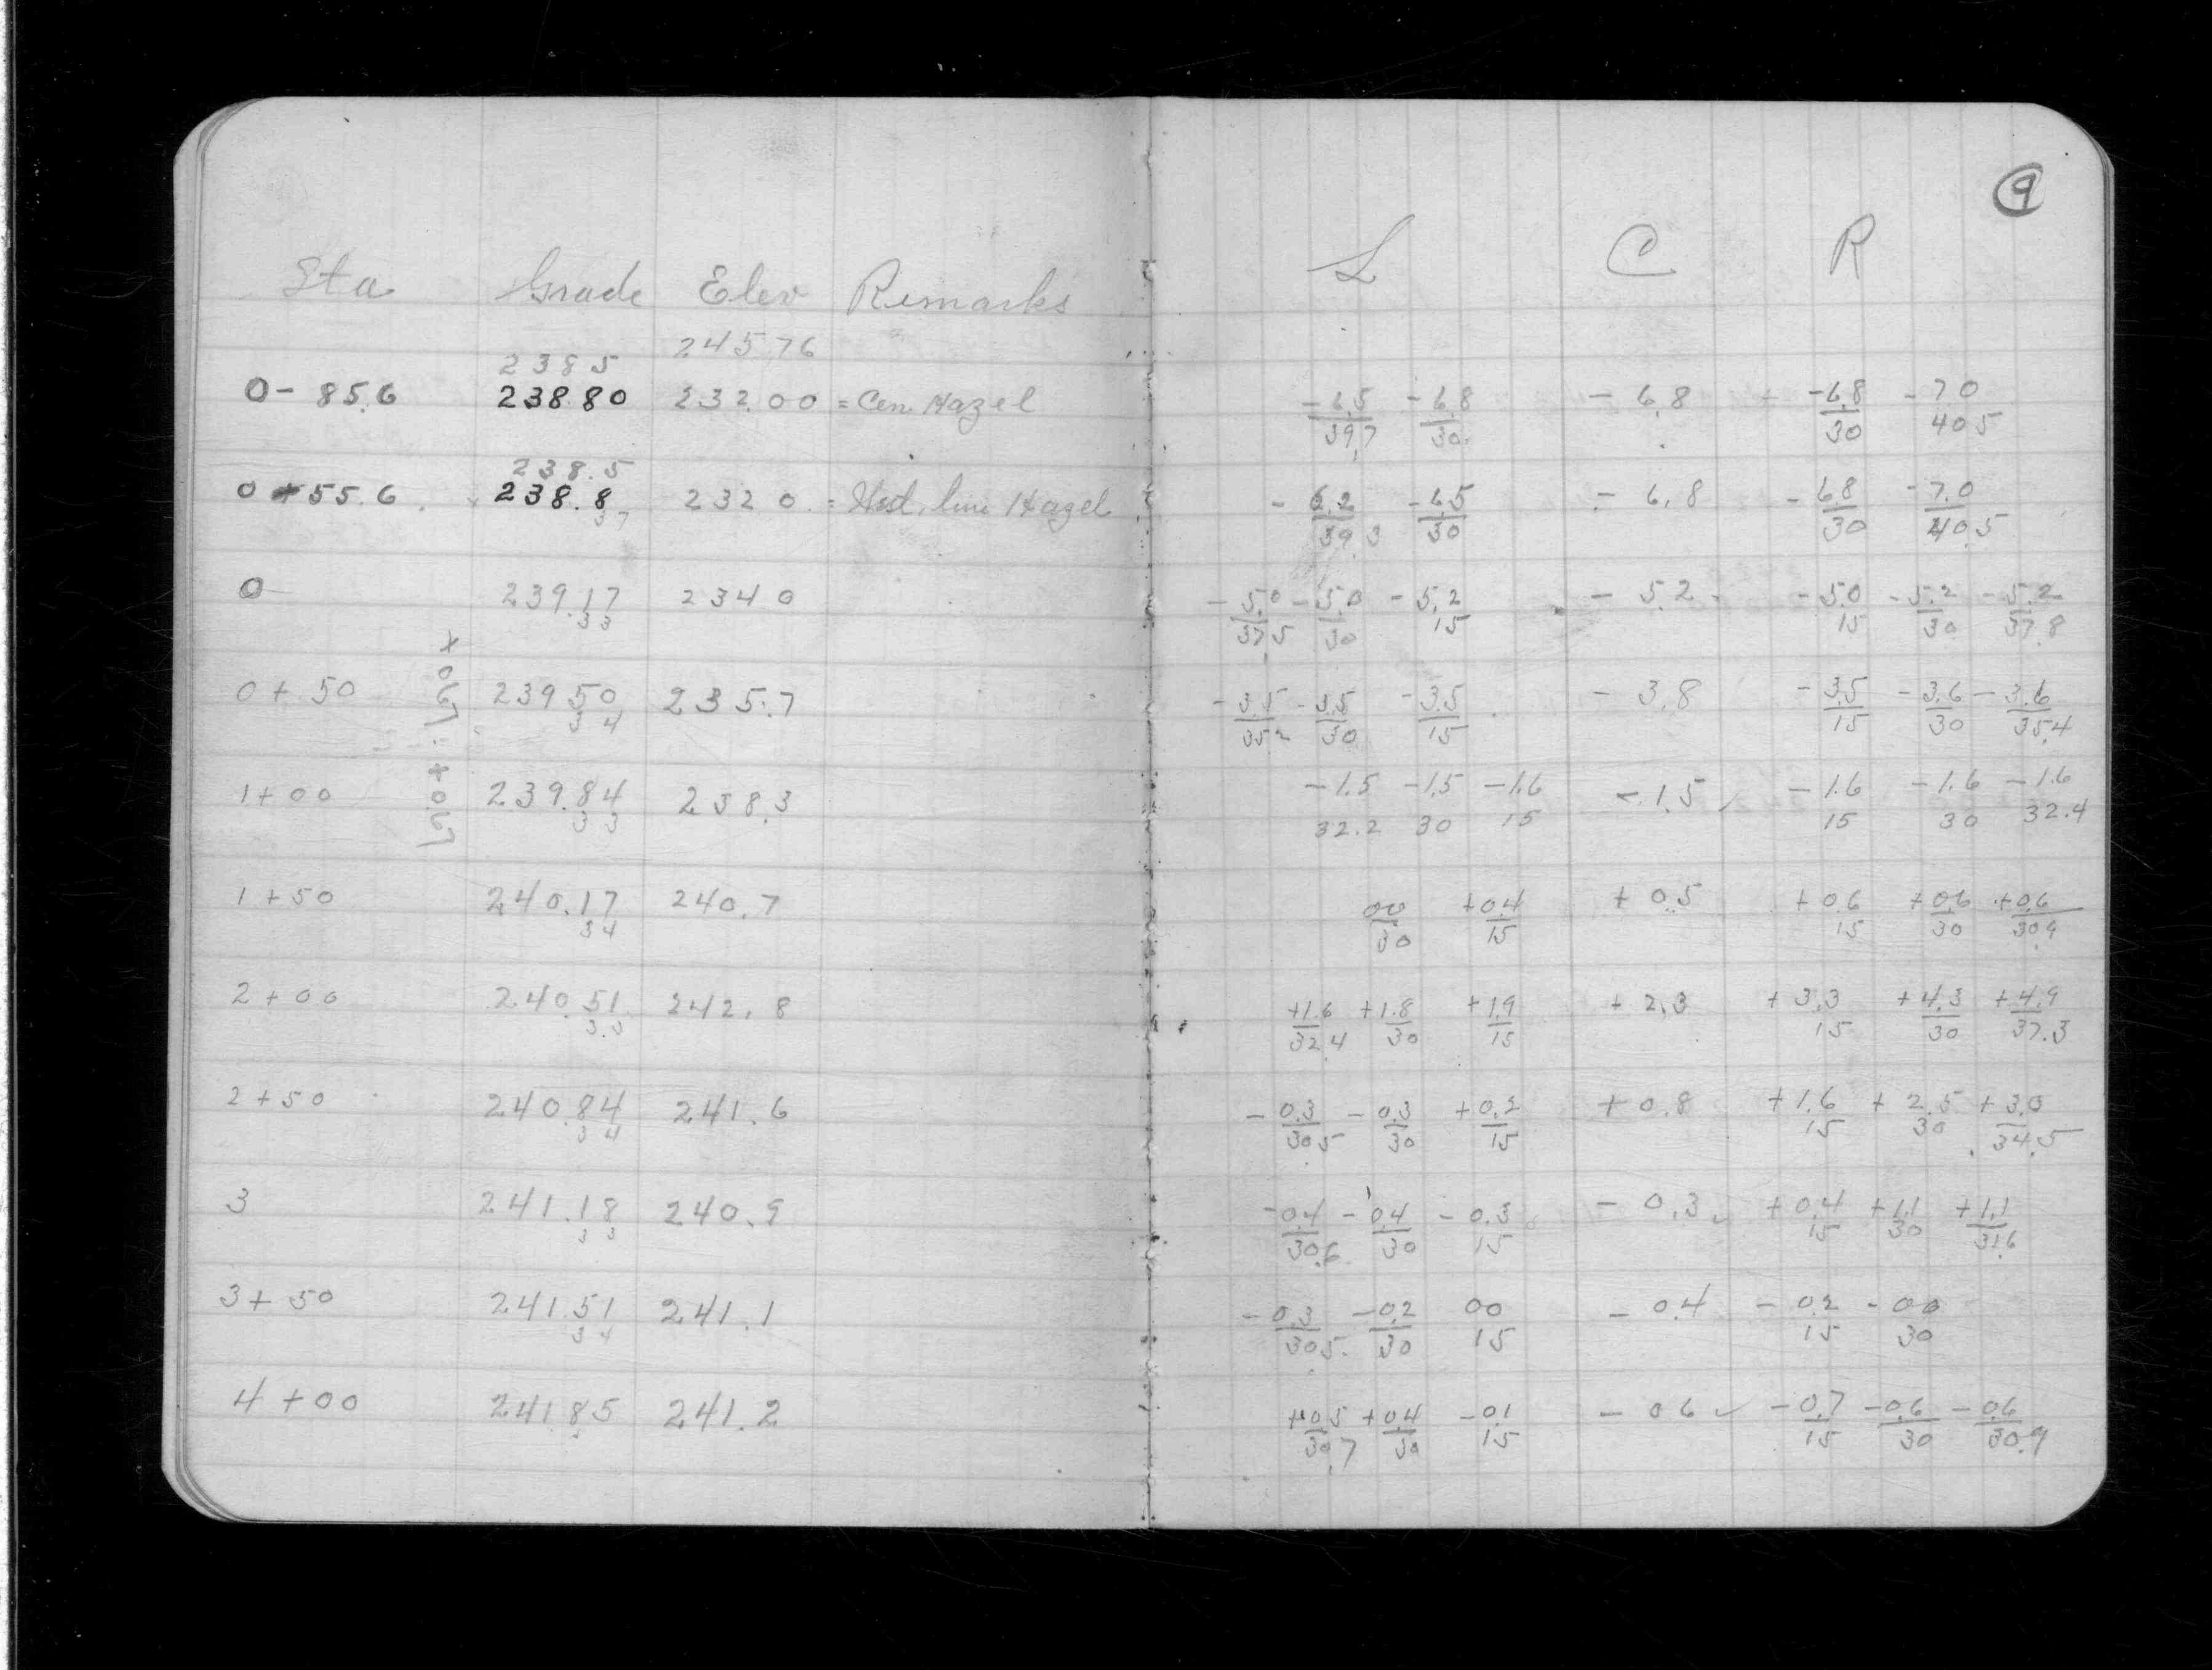 9
Sta Grade Elev Remarks L C R
245.76
238 5
0- 85.6 238 80 232.00 = Cen. Hazel -6.5 -6.8 - 6.8 -6.8 -70
39.7 30 30 40 5
238.5
0+55.6 238.8 232 0 = West. line Hazel - 6.2 -6.5 - 6.8 - 6.8 -7.0
37 39.3 30 30 40.5
0 239.17 234 0 - 5.0 - 5.0 - 5.2 - 5.2 - 5.0 - 5.2 - 5.2
33 37.5 30 15 15 30 37.8
0+ 50 239 50 235.7 - 3.5 - 3.5 - 3.5 - 3.8 - 3.5 - 3.6 - 3.6
34 35 2 30 15 15 30 35.4
+ 0.67
1+00 239.84 238.3 -1.5 -1.5 -1.6 -1.5 -1.6 -1.6 -1.6
33 32.2 30 15 15 30 32.4
1+50 240.17 240.7 00 +0.4 + 0.5 + 0.6 +0.6 +0.6
34 30 15 15 30 30.9
2+00 240.51 242.8 +1.6 +1.8 +1.9 + 2.3 + 3.3 + 4.3 + 4.9
33 32.4 30 15 15 30 37.3
2+50 240.84 241.6 - 0.3 - 0.3 +0.2 + 0.8 +1.6 + 2.5 + 3.0
34 30 5 30 15 15 30 34.5
3 241.18 240.9 -0.4 - 0.4 - 0.3 - 0.3 + 0.4 +1.1 +1.1
33 30.6 30 15 15 30 31.6
3+ 50 241.51 241.1 - 0.3 -0.2 00 - 0.4 - 0.2 - 0 0
34 30 5 30 15 15 30
4+00 241.85 241.2 +0.5 +0.4 -0.1 - 0 6 -0.7 -0.6 -0.6
30.7 30 15 15 30 30.9